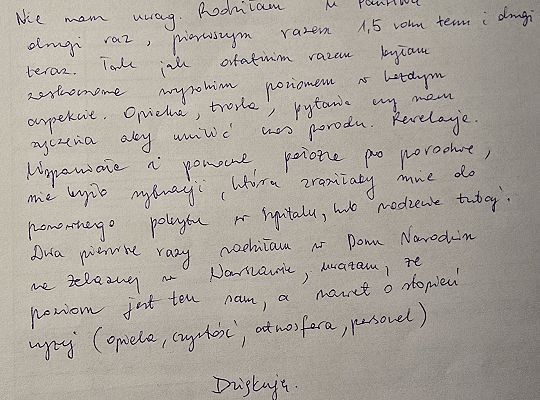 Nie mam uwag. Rodziłam u Państwa
drugi raz, pierwszym razem 1,5 roku temu i drugi
teraz. Tak jak ostatnim razem byłam
zaskoczona wysokim poziomem w każdym
aspekcie. Opieka, troska, pytania czy mam
życzenia aby umilić czas porodu. Rewelacja.
Wspaniałe i pomocne położne po porodowe,
nie było sytuacji, która zraziłaby mnie do
ponownego pobytu w szpitalu, lub rodzenie tutaj.
Dwa pierwsze razy rodziłam w Domu Narodzin
na Żelaznej w Warszawie, uważam, że
poziom jest ten sam, a nawet o stopień
wyżej (opieka, czystość, atmosfera, personel)
Dziękuję.